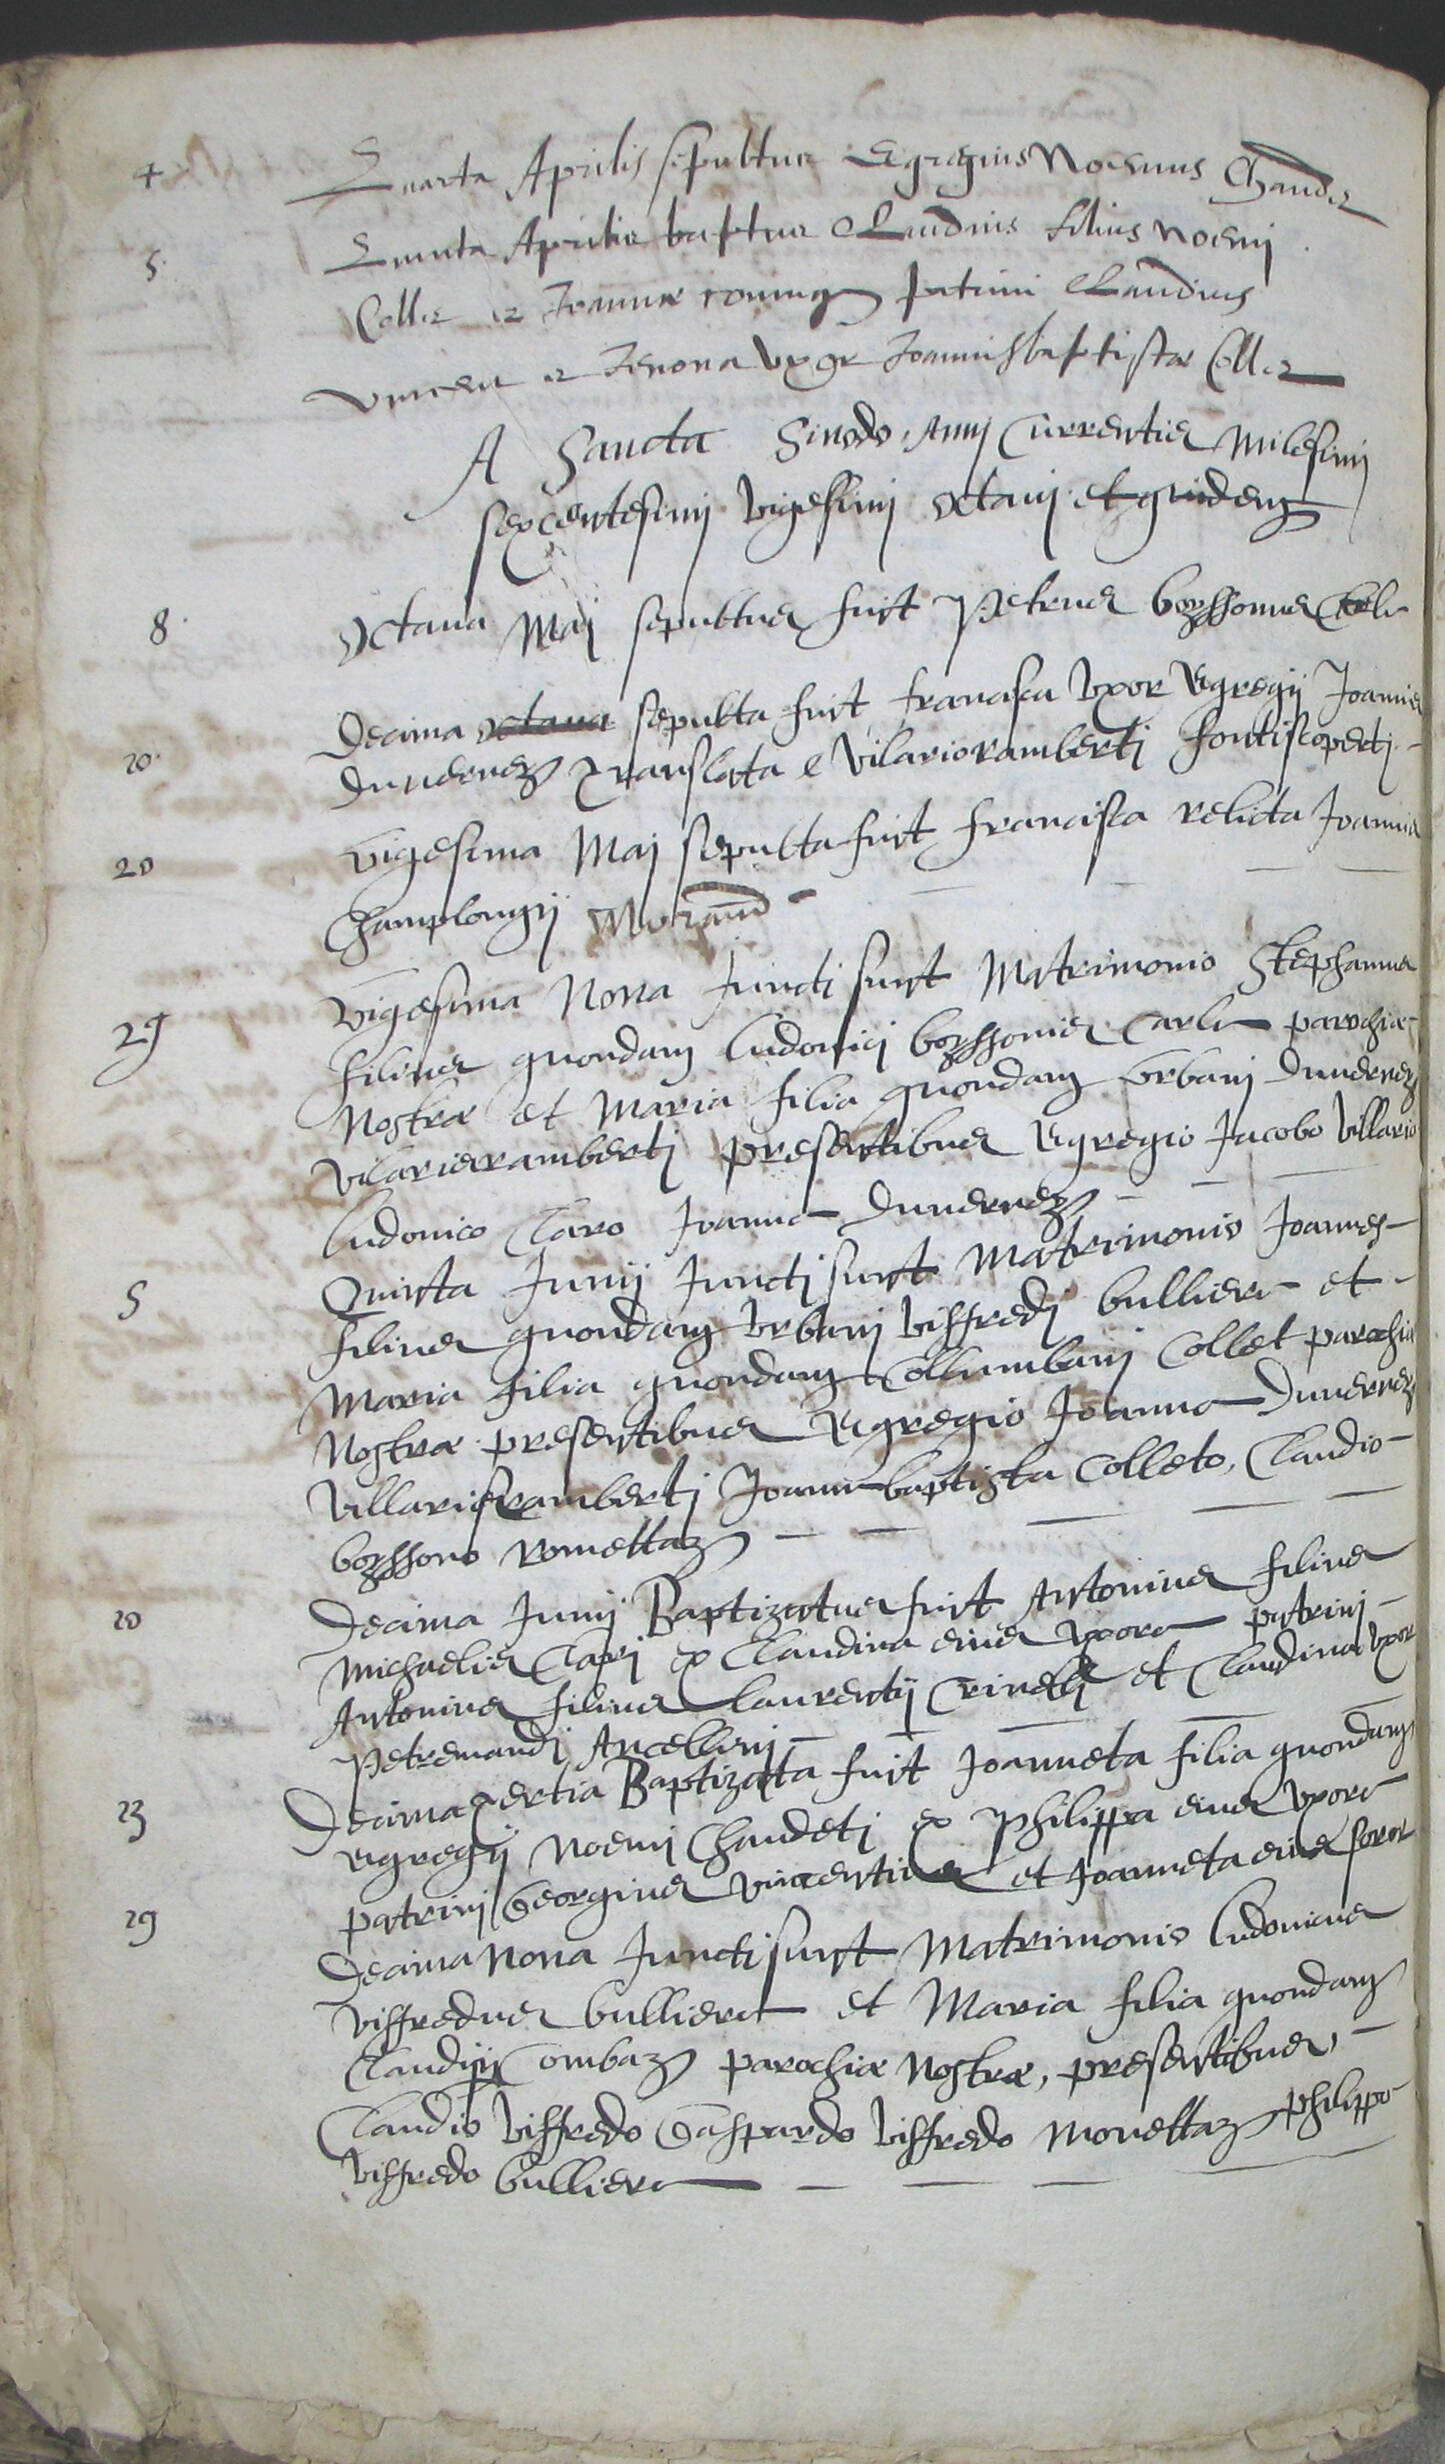 4 Quarta Aprilis sepultus Egregius Noemus Chaudet
5. Quinta Aprilis baptus Claudius filius Noemi
Collet et Joannæ coniug patrini Claudius
Vincent et Jenona Uxor Joannisbaptistæ Collet
A Sancta Sinodo Anni Currentis Milesimi
sexcentesimi vigesimi octavi et
8. Octava Maij sepultus fuit Petrus borssonus
10. Decima octava sepulta fuit francisca Uxor Egregij Joannis
Duverney translata e Vilarioramberti fontiscoperti
20 Vigesima Maij sepulta fuit francisca relicta Joannis
Champlongij Moraud
29 Vigesima Nona Juncti sunt Matrimonio Stephanus
filius quondam Ludovici borssonis Carle parochiæ
Nostræ et Maria filia quondam Urbani Duverney
Vilarisramberti presentibus Egregio Jacobo Villario
Ludovico Claro Joanne Duverney
5 Quinta Junij Juncti sunt Matrimonio Joannes
filius quondam Urbani Viffredi bulliere et
Maria filia quondam Collumbani Collet parochiæ
Nostræ presentibus Egregio Joanne Duverney
Villarisramberti Joannebaptista Colleto, Claudio
borssono romettaz
10 Decima Junij Baptizatus fuit Antonius filius
Michaelis Clari ex Claudina eius Uxore patrini
Antonius filius Laurentij Crineli et Claudina Uxor
Petremandi Ancellini
13 Decima tertia Baptizata fuit Joanneta filia quondam
Egregij Noemi Chaudeti ex Philippa eius Uxore
patrini Georgius Vincentius et Joanneta eius soror
19 Decima Nona Juncti sunt Matrimonio Ludovicus
Viffredus bulliere et Maria filia quondam
Claudij Combaz parochiæ Nostræ, presentibus
Claudio Viffredo Gaspardo Viffredo Monettaz Philippo
Viffredo bulliere